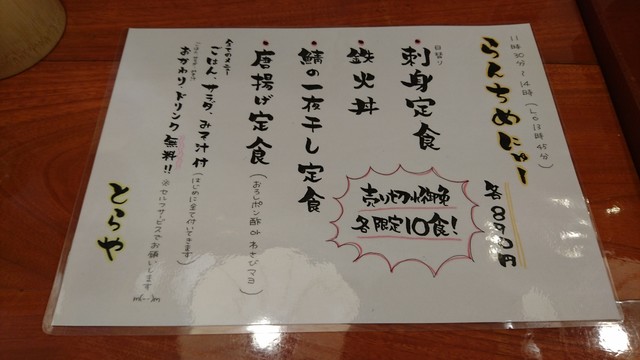 11時30分〜14時（L.o 13時45分）
らんちめにゅー
各890円
日替り
刺身定食
鉄火丼
鯖の一夜干し定食
唐揚げ定食
（おろしポン酢 or わさびマヨ）
売り切れ御免
各限定10食！
全てのメニュー
ごはん、サラダ、みそ汁付
（はじめに全て付いてきます）
おかわり、ドリンク無料！！
※セルフサービスでお願いします
とらや